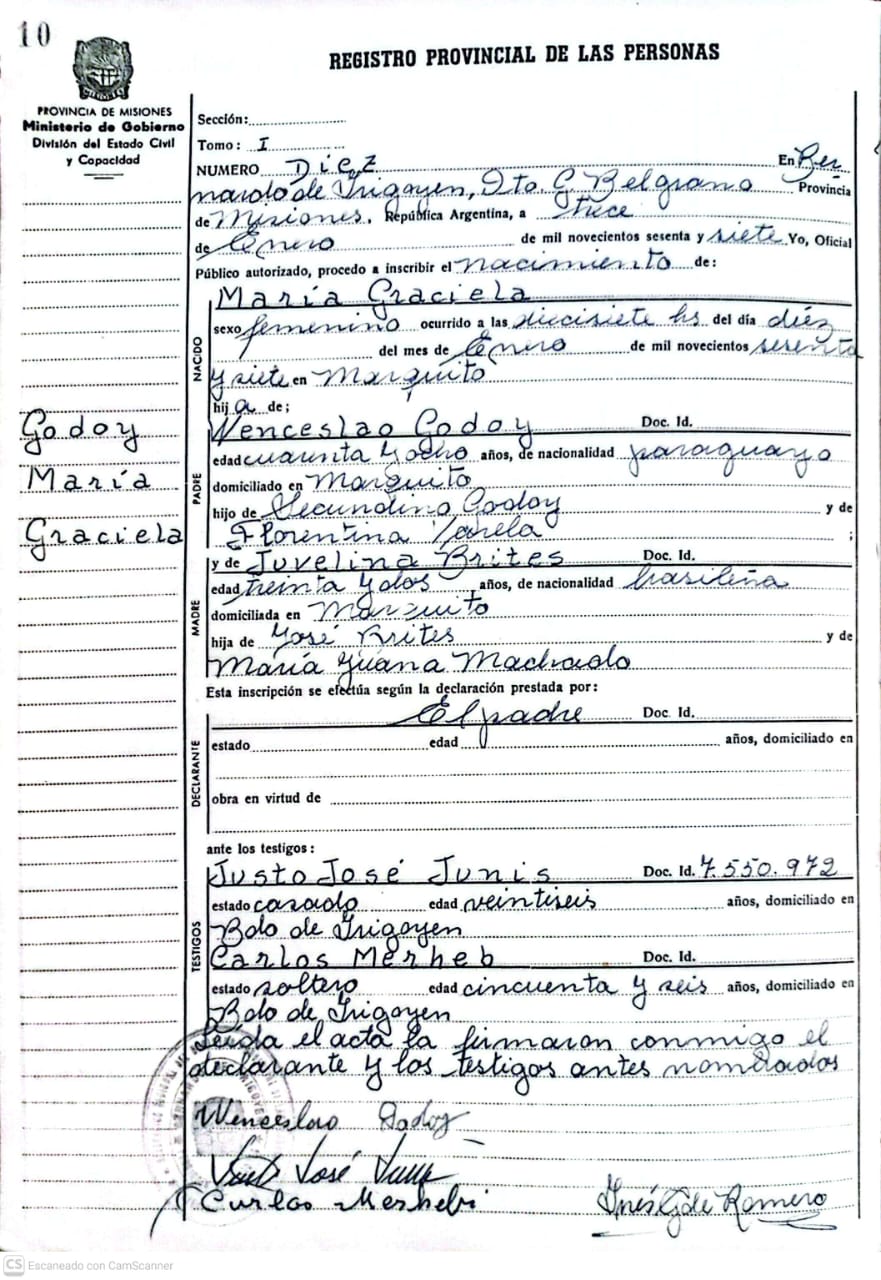 10
REGISTRO PROVINCIAL DE LAS PERSONAS
PROVINCIA DE MISIONES
Ministerio de Gobierno
División del Estado Civil
y Capacidad
Sección:
Tomo: I
NUMERO Diez En Ber
nardo de Irigoyen, Dto. G. Belgrano Provincia
de Misiones. República Argentina, a trece
de Enero de mil novecientos sesenta y siete Yo, Oficial
Público autorizado, procedo a inscribir el nacimiento de:
NACIDO
María Graciela
sexo femenino ocurrido a las diecisiete hs del día diéz
del mes de Enero de mil novecientos sesenta
y siete en Marquito
hija de;
Godoy
María
Graciela
PADRE
Wenceslao Godoy Doc. Id.
edad cuarenta y ocho años, de nacionalidad paraguayo
domiciliado en Marquito
hijo de Secundino Godoy y de
Florentina Varela ;
MADRE
y de Juvelina Brites Doc. Id.
edad treinta y dos años, de nacionalidad brasileña
domiciliada en Marquito
hija de José Brites y de
María Juana Machado
Esta inscripción se efectúa según la declaración prestada por:
DECLARANTE
El padre Doc. Id.
estado edad años, domiciliado en
obra en virtud de
ante los testigos:
TESTIGOS
Justo José Junis Doc. Id. 7.550.972
estado casado edad veintiseis años, domiciliado en
Bdo de Irigoyen
Carlos Merheb Doc. Id.
estado soltero edad cincuenta y seis años, domiciliado en
Bdo de Irigoyen
Leída el acta la firmaron conmigo el
declarante y los testigos antes nombrados
Wenceslao Godoy
José
Carlos Merhebi
Inés G de Romero
CS Escaneado con CamScanner